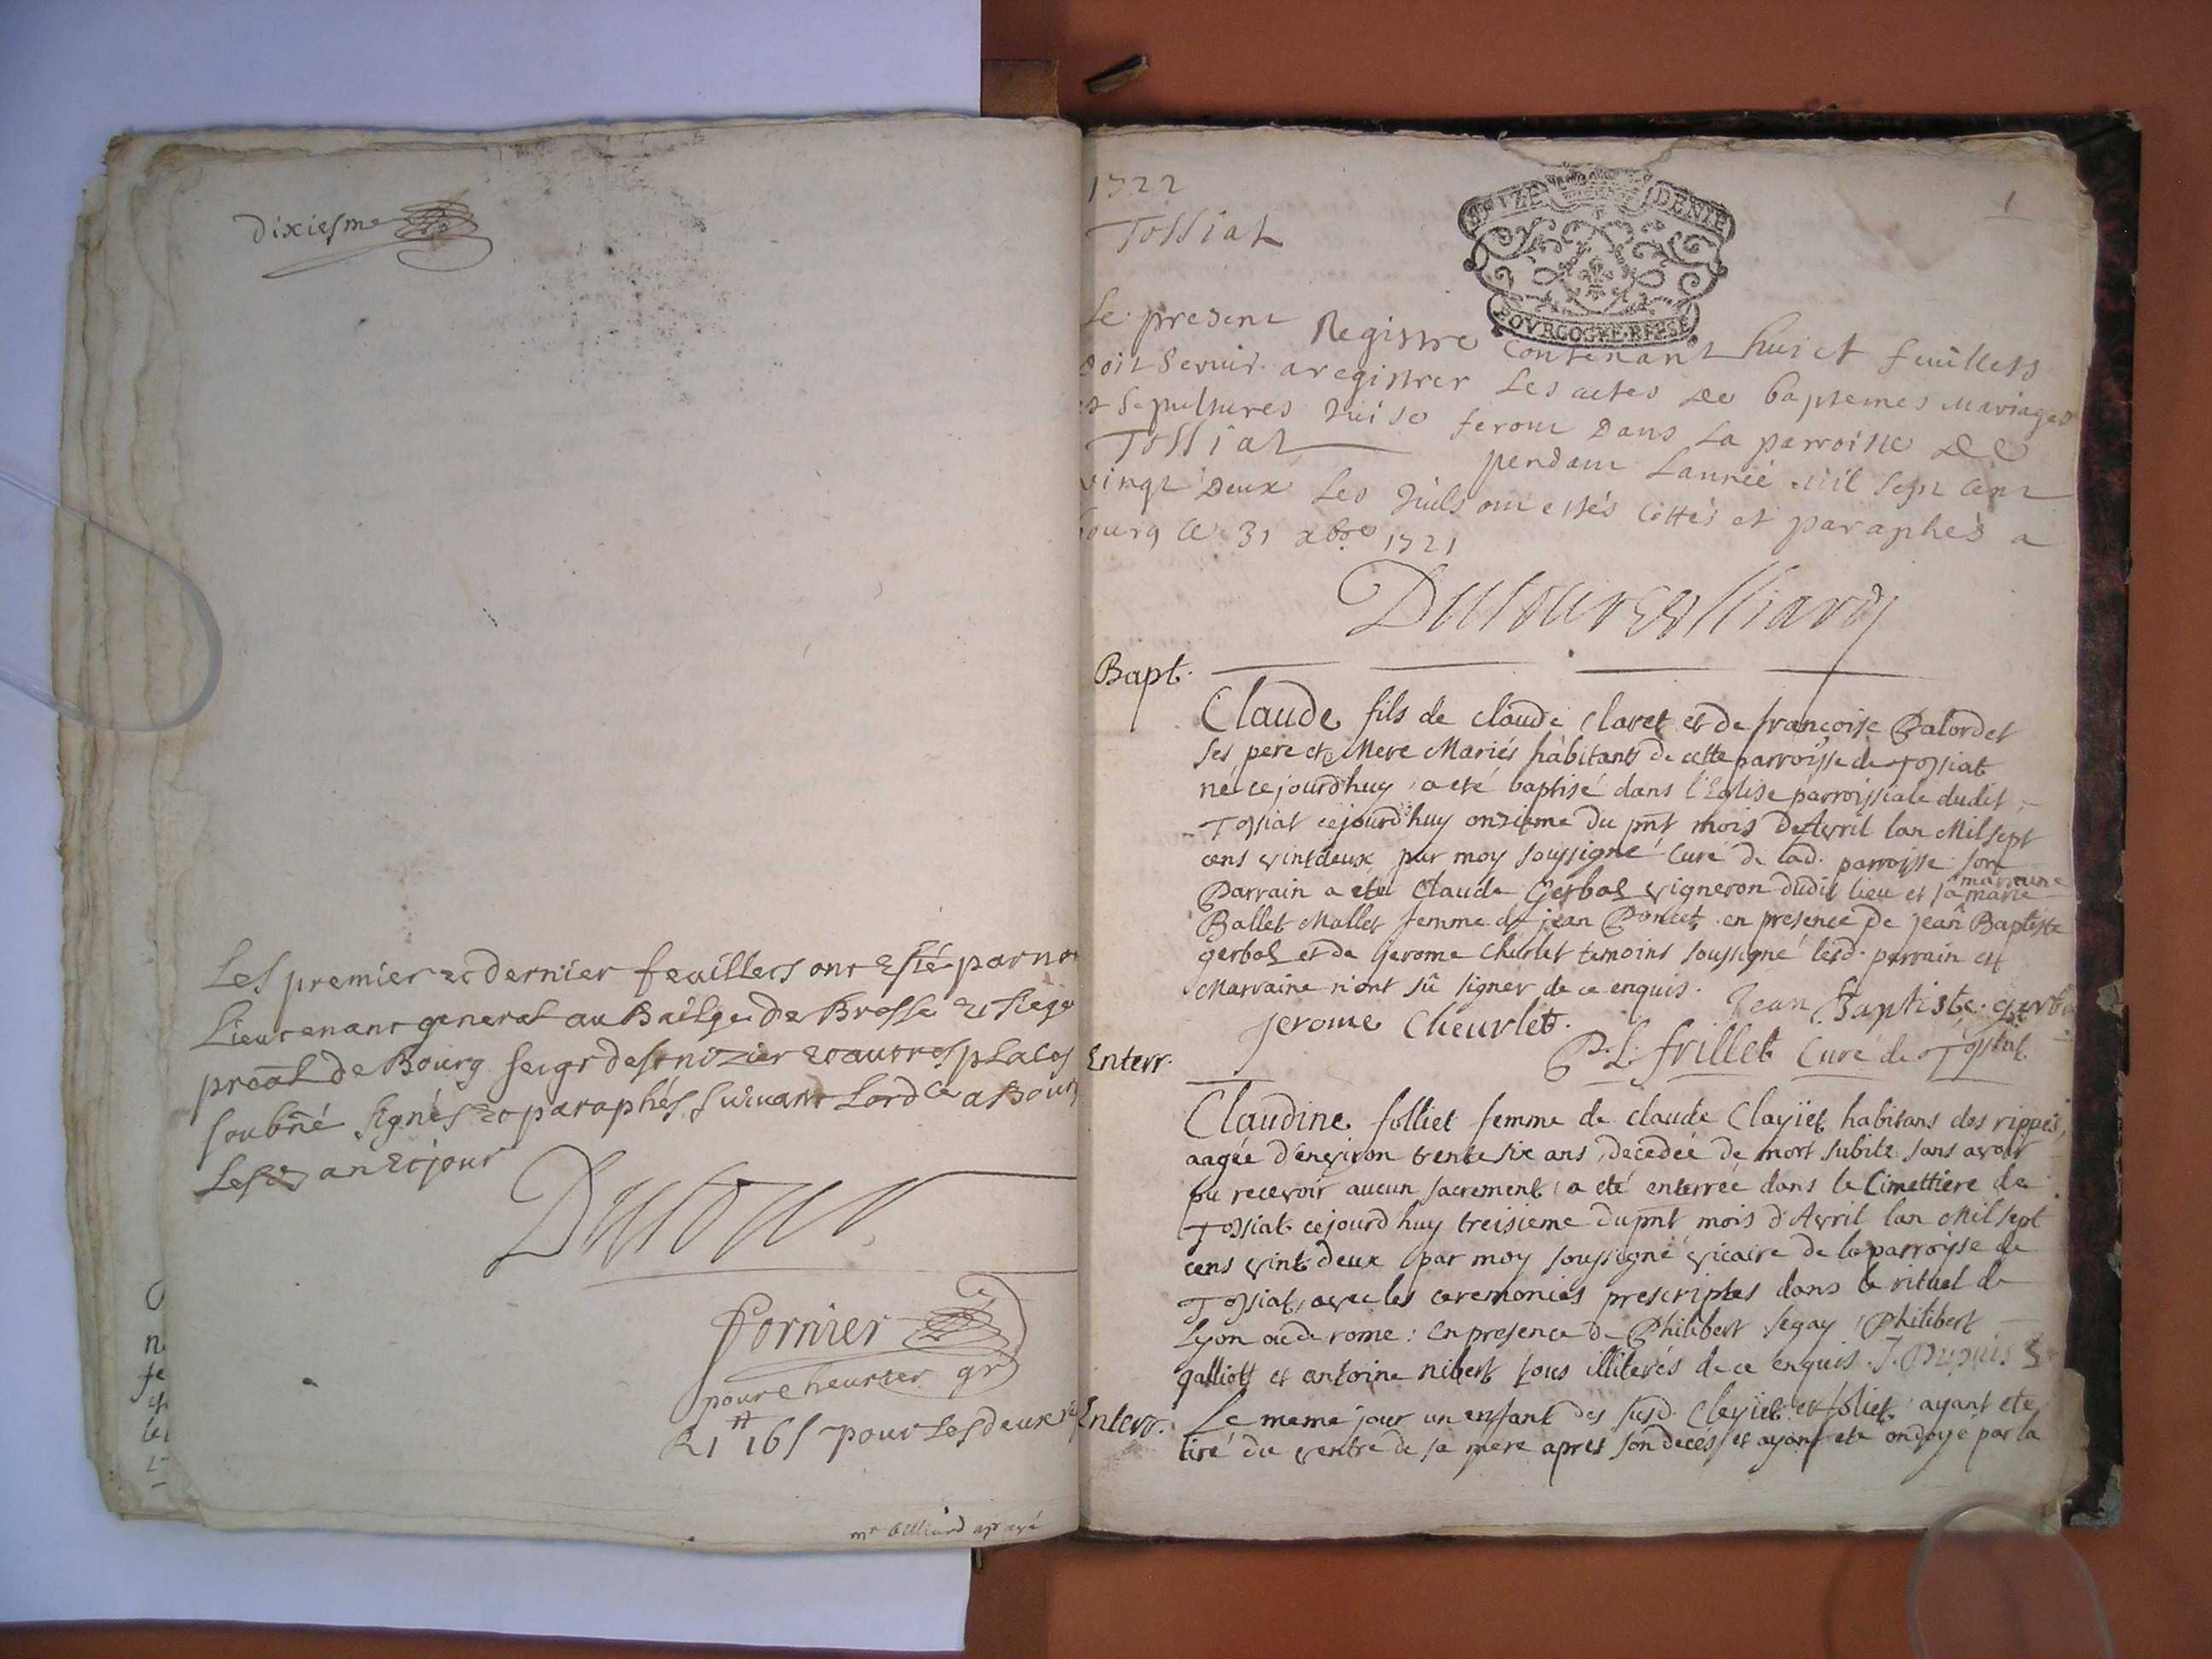 dixiesme
Les premier et dernier feuillets ont esté par nou
Lieutenant general au Bailge. De Bresse et siege
preāl de Bourg seigr de st nizier et autres places
soubñé signés et paraphés suivant Lordce a Bourg
Les an et jour
Dutour
fornier
pour cheurier gr
R 1tt 16s pour Les deux
mr
1722
Tossiat
SEIZE DENIE
BOVRGOGNE BRESSE
1
Le present Registre contenant huict feuillets
Doit Servir a registrer Les actes De baptemes Mariages
et Sepultures Qui se feront Dans La parroisse De
Tossiat pendant Lannée Mil sept cent
vingt Deux Les Quels ont estés cottés et paraphés a
bourg ce 31 xbre 1721
Dutour
Bapt.
Claude fils de claude claret et de françoise Palordet
ses pere et Mere Mariés habitants de cette parroisse de Tossiat
né cejourd'huy a eté baptisé dans l'Eglise parroissiale dudit
Tossiat cejourd'huy onzieme du pnt mois D'Avril lan Mil sept
cens vint deux par moy soussigné Curé de lad. parroisse son
Parrain a eté Claude Gerbal vigneron dudit lieu et sa marraine marie
Ballet Mallet femme de jean Poncet en presence de jean Baptiste
gerbal et de Jerome cheurlet temoins soussigné lesd. parrain et
Marraine n'ont sû signer de ce enquis. Jean Baptiste gerba
jerome Cheurlet.
P. L. frillet Curé de Tossiat
Enterr.
Claudine folliet femme de claude Clayiet habitans des rippes,
aagée d'environ trente six ans, decedée de mort subite sans avoir
pu recevoir aucun sacrement, a eté enterrée dans le Cimettiere de
Tossiat cejourd'huy treisieme du pnt mois d'Avril lan Mil sept
cens vint deux par moy soussigné vicaire de la parroisse de
Tossiat, avec les ceremonies prescriptes dans le rituel de
Lyon de rome: En presence de Philibert segay, Philibert
galliott et antoine nibert tous illiterés de ce enquis. J. Dupuis
Enterr.
Le meme jour un enfant des susd. Clayiet et foliet, ayant ete
tiré du ventre de sa mere apres son decés et ayant ete ondoyé par la